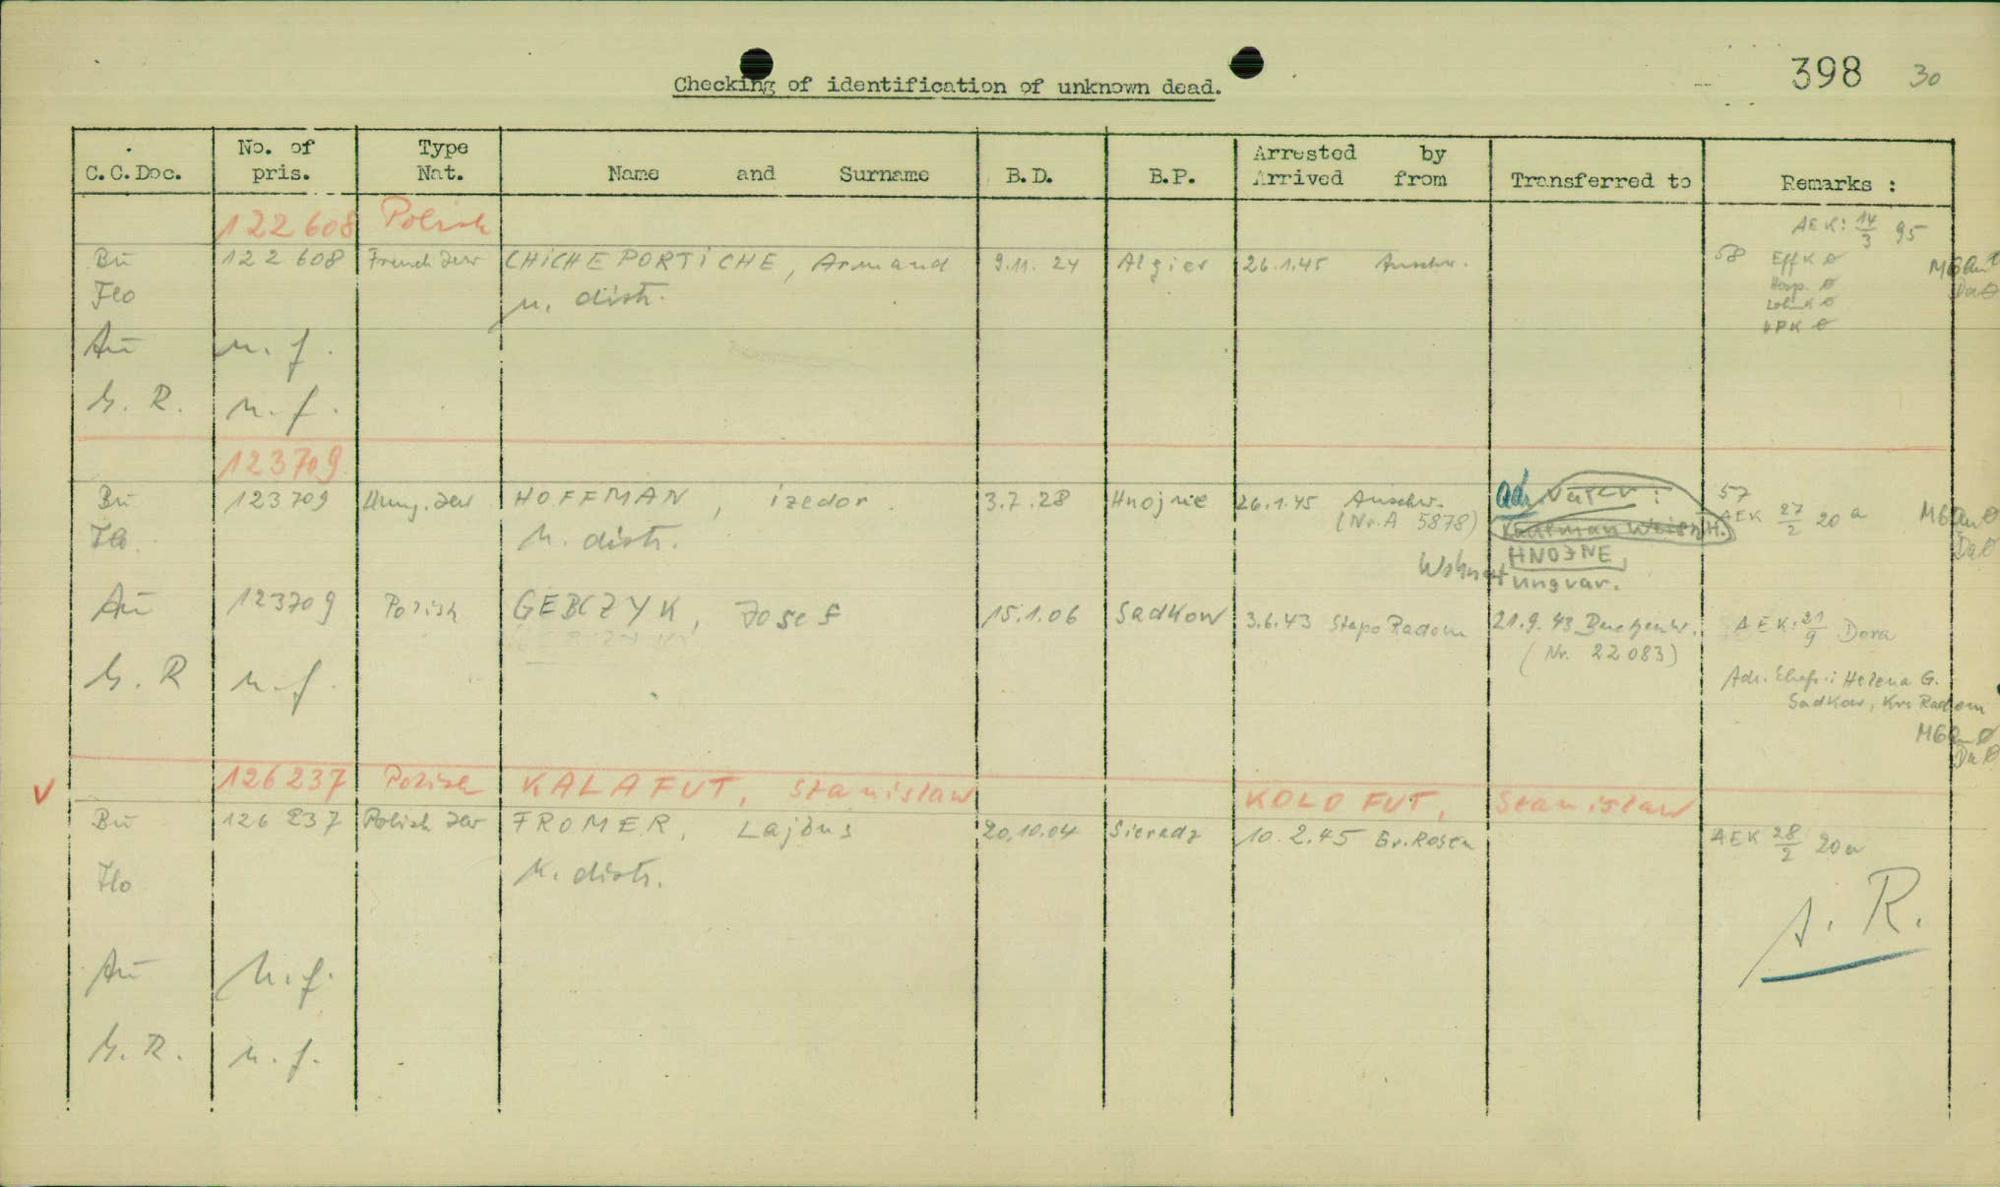 398 30
Checking of identification of unknown dead.
C.C.Doc. No. of pris. Type Nat. Name and Surname B.D. B.P. Arrested by Arrived from Transferred to Remarks :
122 608 Polish AEK: 14/3 95
Bu 122 608 French Jew CHICHE PORTICHE, Armand 9.11. 24 Algier 26.1.45 Auschw. 58 Eff K ø
Flo n. distr. Hosp. ø
ø
Au n. f. ø
G. R. n. f.
123709
Bu 123709 Hung. Jew HOFFMAN, izedor 3.7.28 Hnojne 26.1.45 Auschw. Adr. Vater: 57
(Nr. A 5878) Kaufman AEK 27/2 20 a
Flo n. distr. HNOJNE,
Wohnort Ungvar.
Au 123709 Polish GEBCZYK, Josef 15.1.06 Sadkow 3.6.43 Stapo Radom 21.9.43 Buchenw. AEK: 21/9 Dora
(Nr. 22083)
G. R n. f. Adr. Ehefr.: Helena G.
Sadkow, Krs Radom
V 126237 Polish KALAFUT, Stanislaw KOLOFUT, Stanislaw
Bu 126 237 Polish Jew FROMER, Lajbus 20.10.04 Sieradz 10.2.45 Gr. Rosen AEK 28/2 20a
Flo n. distr.
A. R.
Au n. f.
G. R. n. f.